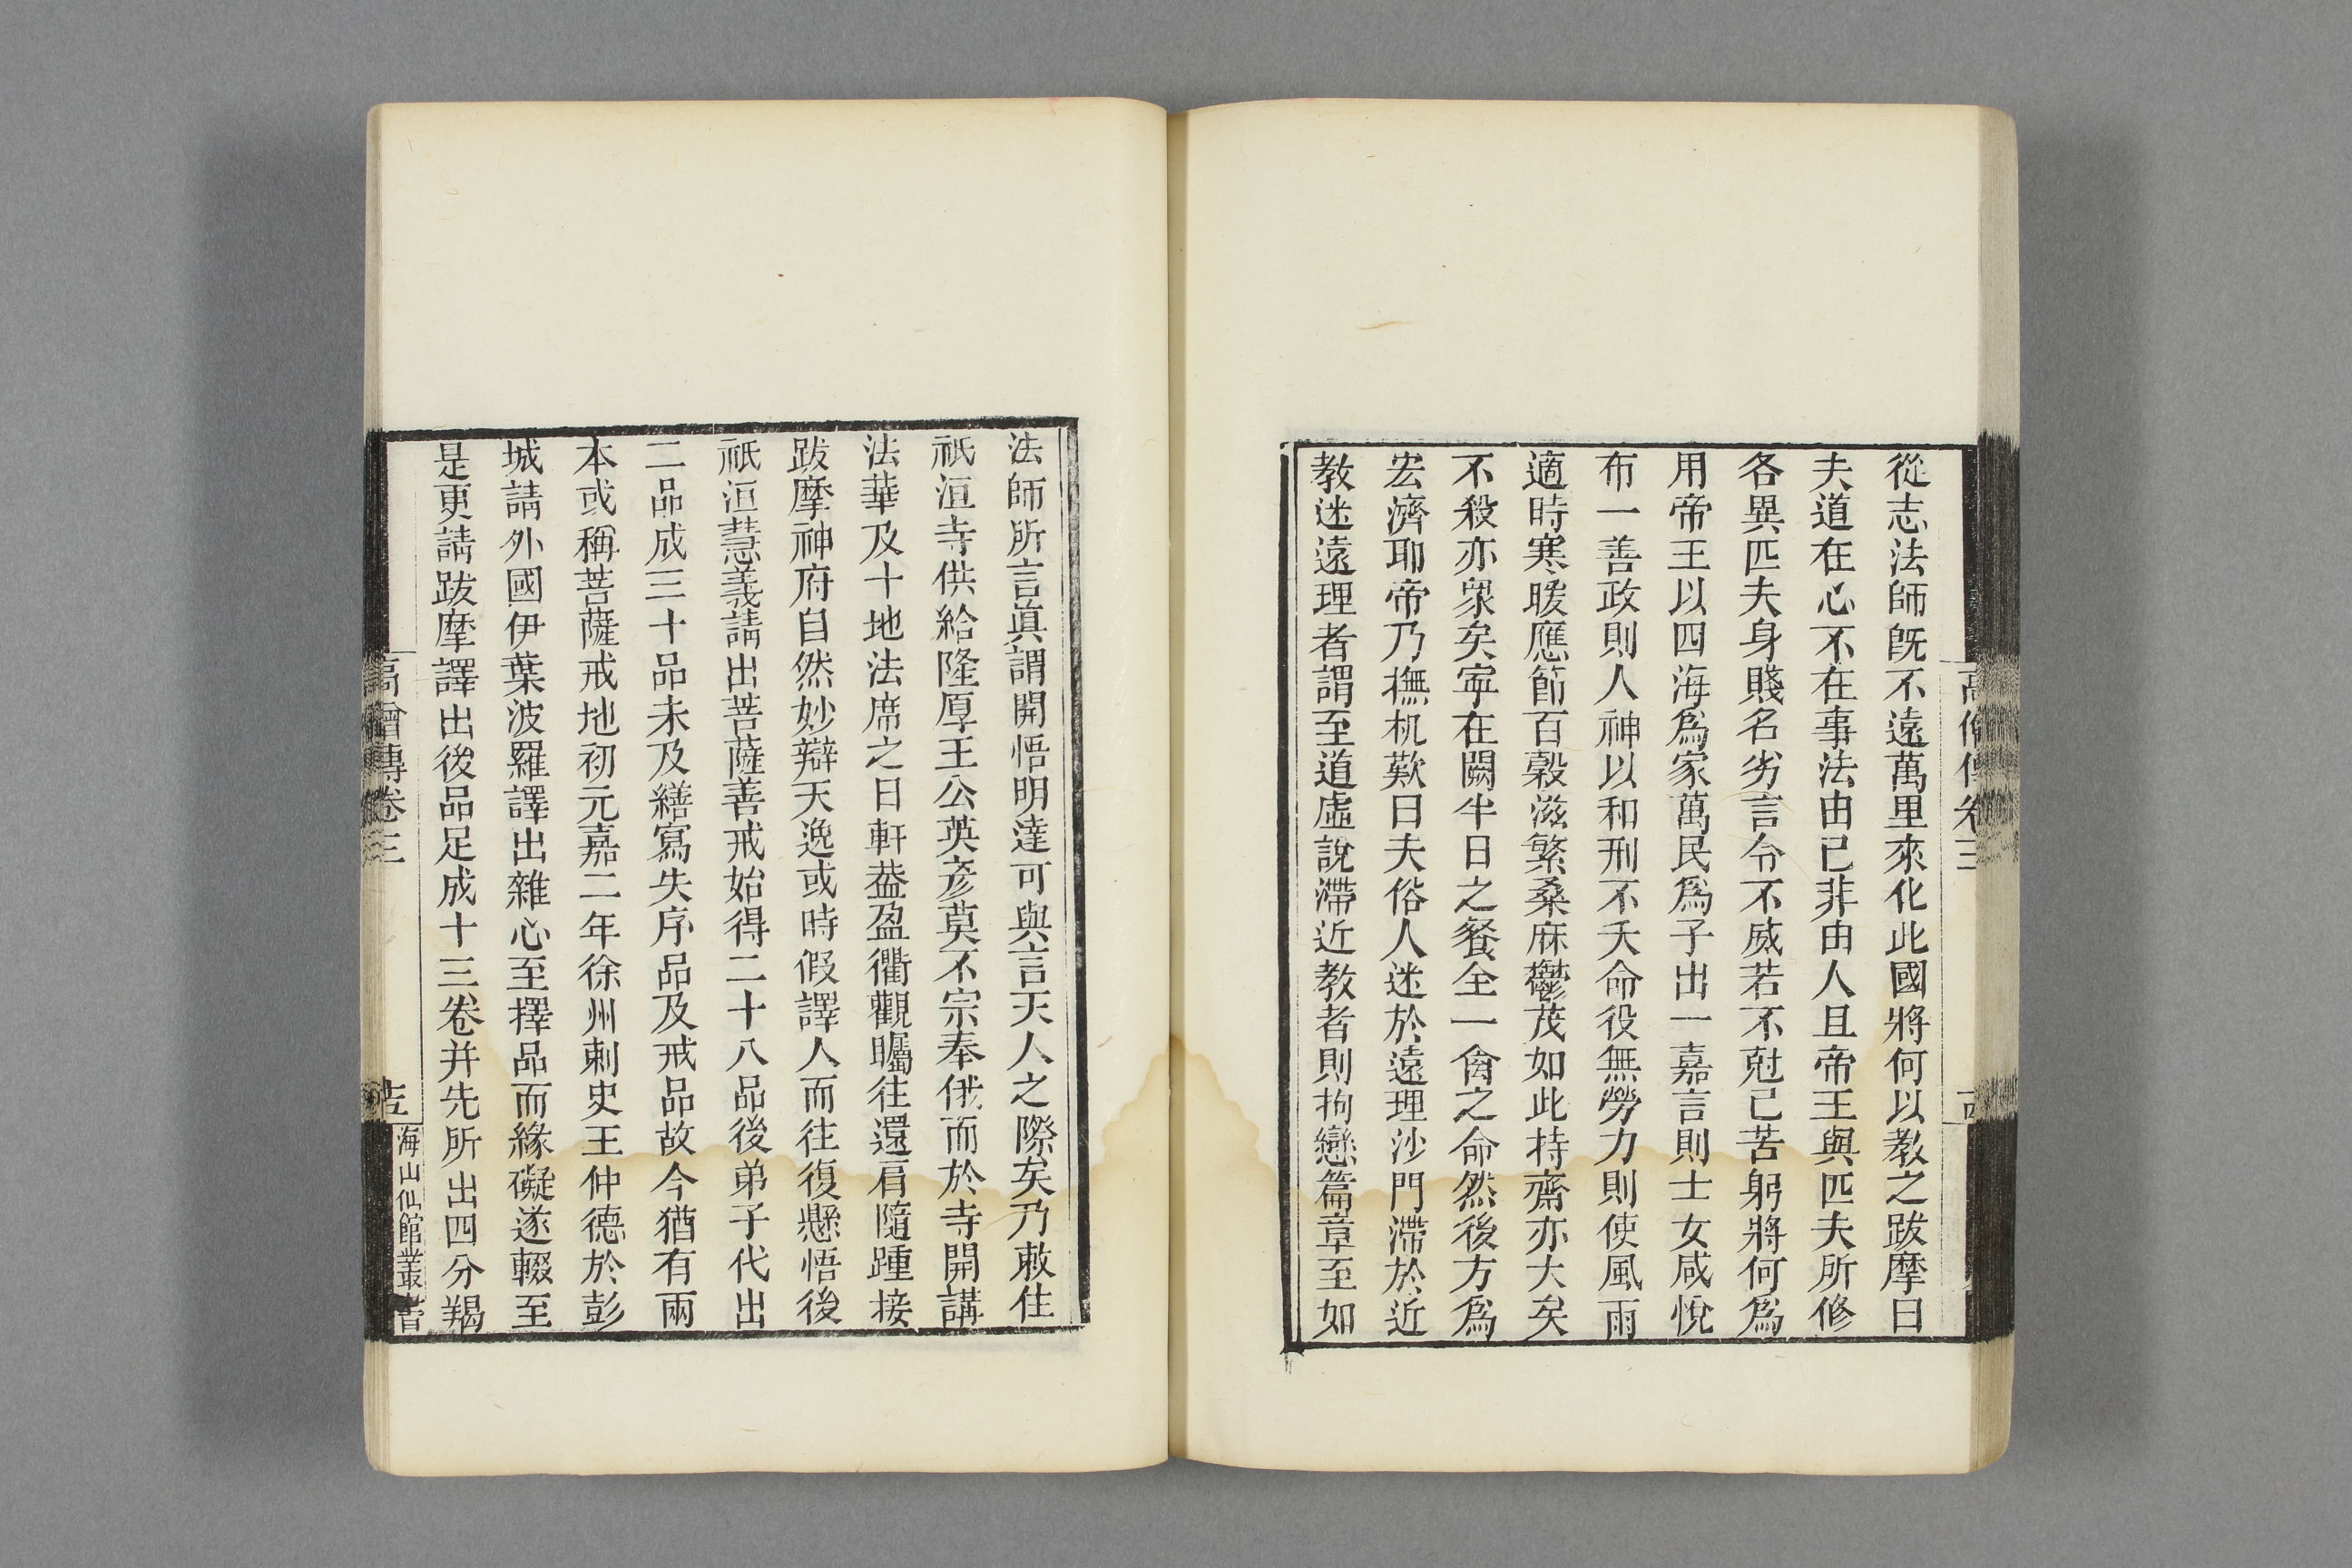 高僧傳卷三
從志法師既不遠萬里來化此國將何以教之跋摩曰
夫道在心不在事法由己非由人且帝王與匹夫所修
各異匹夫身賤名劣言令不威若不尅己苦躬將何爲
用帝王以四海爲家萬民爲子出一嘉言則士女咸悅
布一善政則人神以和刑不夭命役無勞力則使風雨
適時寒暖應節百穀滋繁桑麻鬱茂如此持齋亦大矣
不殺亦衆矣寧在闕半日之餐全一禽之命然後方爲
宏濟耶帝乃撫机歎曰夫俗人迷於遠理沙門滯於近
教迷遠理者謂至道虛說滯近教者則拘戀篇章至如
法師所言眞謂開悟明達可與言天人之際矣乃敕住
祇洹寺供給隆厚王公英彥莫不宗奉俄而於寺開講
法華及十地法席之日軒葢盈衢觀矚往還肩隨踵接
跋摩神府自然妙辯天逸或時假譯人而往復懸悟後
祇洹慧義請出菩薩善戒始得二十八品後弟子代出
二品成三十品未及繕寫失序品及戒品故今猶有兩
本或稱菩薩戒地初元嘉二年徐州刺史王仲德於彭
城請外國伊葉波羅譯出雜心至擇品而緣礙遂輟至
是更請跋摩譯出後品足成十三卷并先所出四分羯
高僧傳卷三
海山仙館叢書